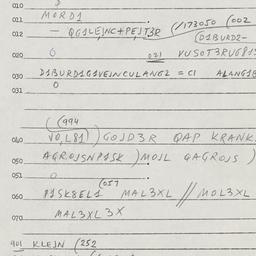 010
011 MORD1
012 - QG1LEJNC+PEJT3R (/173050 (002
(D1BURD2-
020 021 VUSOT3RUG81S
030 D1BURD1G1VEJNCULANG2 = C1 ALANG1B
031
(994
040 V0,L81) GOJD3R QAP KRANK
050 AGROJSNP1SK) MOJL GAGROJS)
051
(057
060 P1SK8EL1 MAL3XL // MOL3XL
070 MAL3XL 3X
901 KLEJN (252